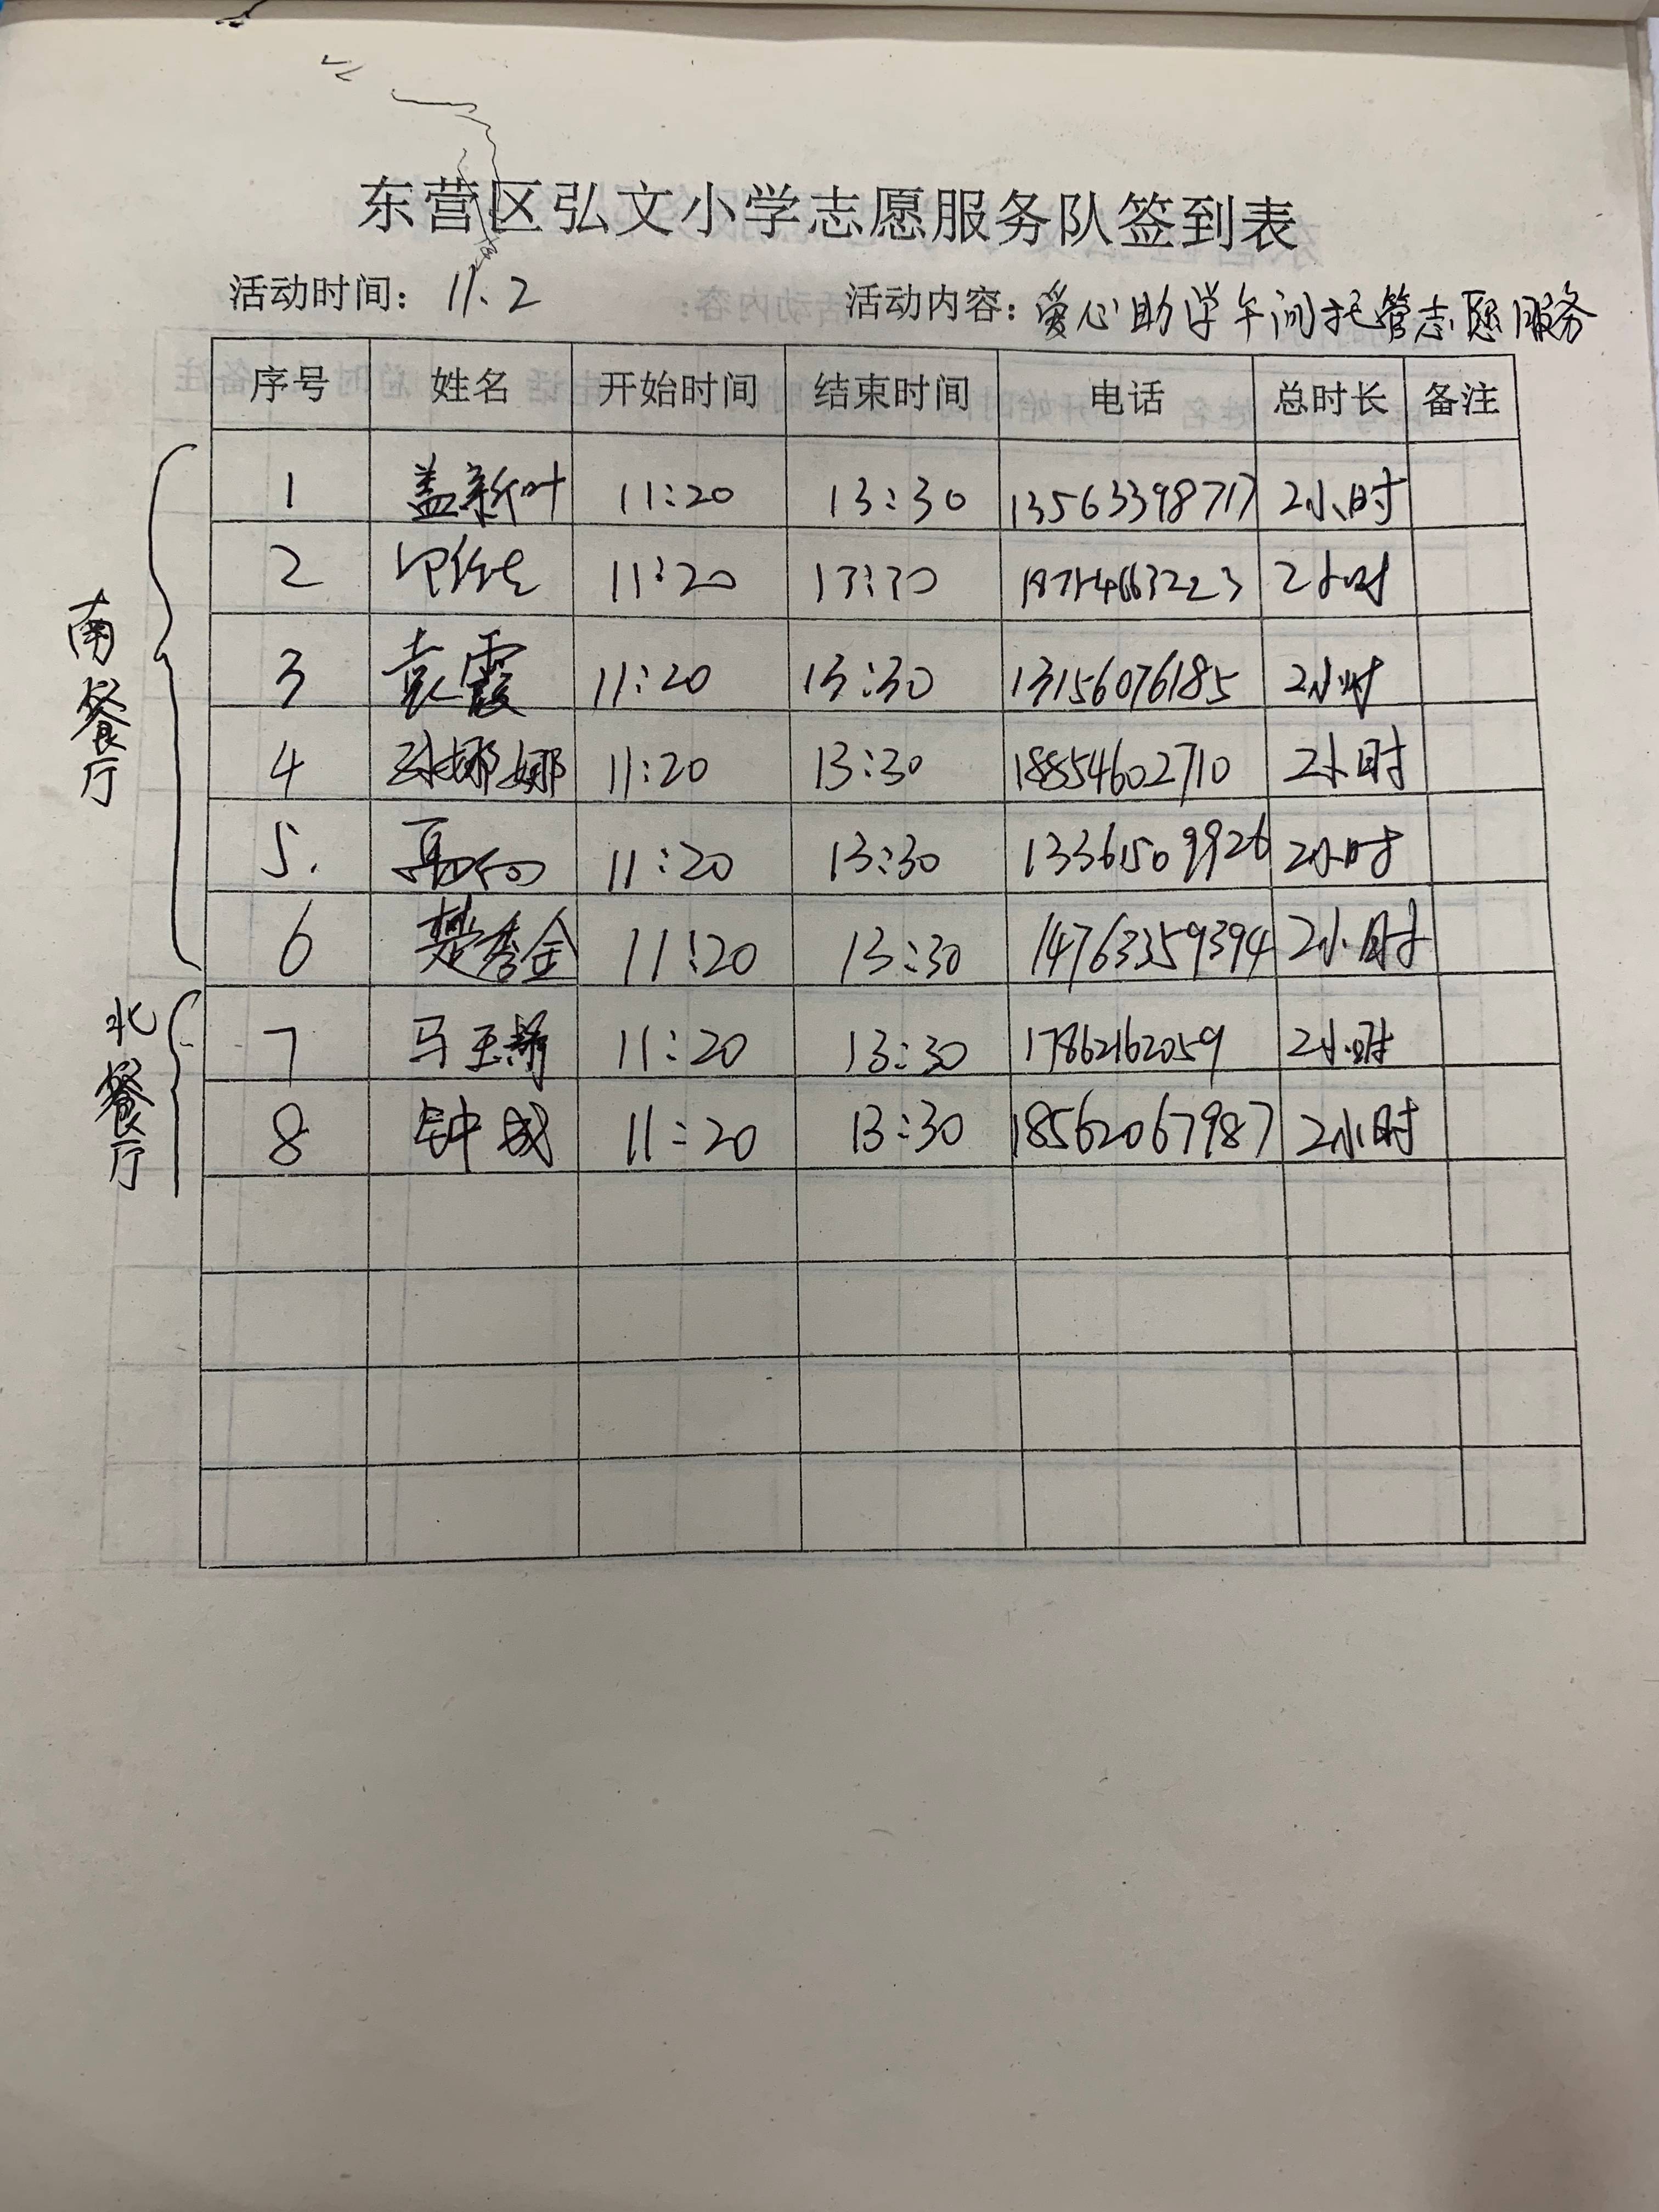 东营区弘文小学志愿服务队签到表
活动时间：11.2 活动内容：爱心助学午间托管志愿服务
序号 姓名 开始时间 结束时间 电话 总时长 备注
南餐厅
1 盖新叶 11:20 13:30 13563398717 2小时
2 11:20 13:30 2小时
3 袁霞 11:20 13:30 13156076185 2小时
4 孙娜娜 11:20 13:30 18854602710 2小时
5. 11:20 13:30 13361509926 2小时
6 楚秀金 11:20 13:30 14763359394 2小时
北餐厅
7 马玉 11:20 13:30 17862162059 2小时
8 钟成 11:20 13:30 18562067987 2小时